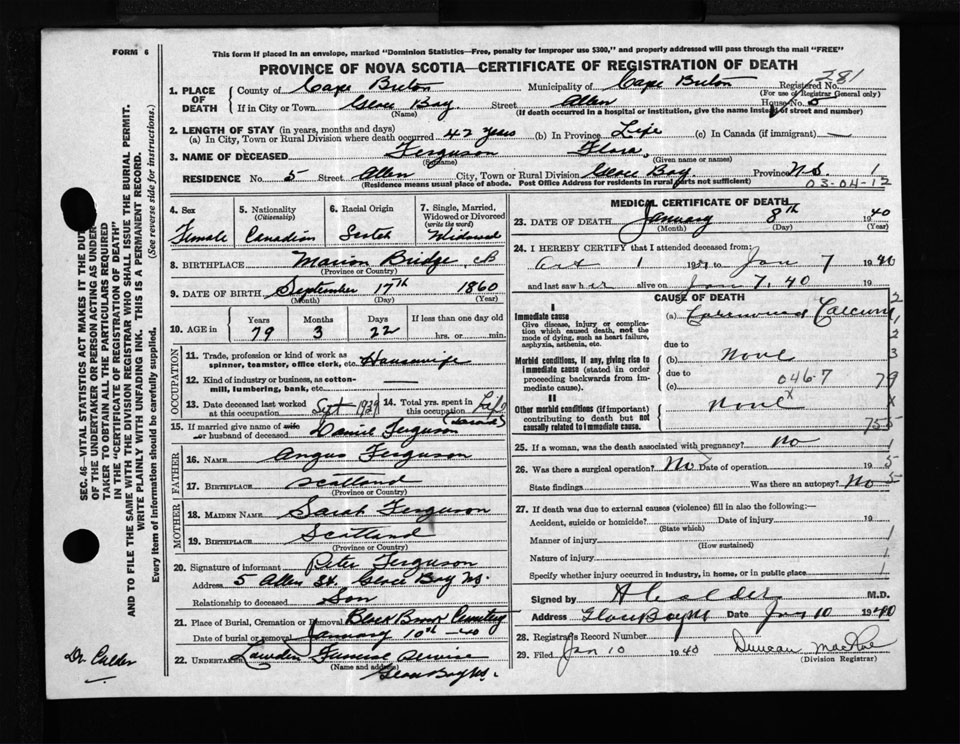 FORM 6
This form if placed in an envelope, marked "Dominion Statistics—Free, penalty for improper use $300," and properly addressed will pass through the mail "FREE"
PROVINCE OF NOVA SCOTIA—CERTIFICATE OF REGISTRATION OF DEATH
SEC. 46—VITAL STATISTICS ACT MAKES IT THE DUTY
OF THE UNDERTAKER OR PERSON ACTING AS UNDER-
TAKER TO OBTAIN ALL THE PARTICULARS REQUIRED
IN THE "CERTIFICATE OF REGISTRATION OF DEATH"
AND TO FILE THE SAME WITH THE DIVISION REGISTRAR WHO SHALL ISSUE THE BURIAL PERMIT.
WRITE PLAINLY WITH UNFADING INK. THIS IS A PERMANENT RECORD.
Every item of information should be carefully supplied. (See reverse side for instructions.)
Dr. Calder
1. PLACE OF DEATH County of Cape Breton Municipality of Cape Breton Registered No. 281
(For use of Registrar General only)
If in City or Town Glace Bay Street Allen House No. 5
(Name) (If death occurred in a hospital or institution, give the name instead of street and number)
2. LENGTH OF STAY (in years, months and days)
(a) In City, Town or Rural Division where death occurred 42 years (b) In Province Life (c) In Canada (if immigrant) —
3. NAME OF DECEASED Ferguson Flora,
(Surname) (Given name or names)
RESIDENCE No. 5 Street Allen City, Town or Rural Division Glace Bay Province N.S. 1
(Residence means usual place of abode. Post Office Address for residents in rural parts not sufficient) 03-04-12
4. Sex Female
5. Nationality (Citizenship) Canadian
6. Racial Origin Scotch
7. Single, Married, Widowed or Divorced (write the word) Widowed
8. BIRTHPLACE Marion Bridge, CB
(Province or Country)
9. DATE OF BIRTH September 17th 1860
(Month) (Day) (Year)
10. AGE in Years Months Days If less than one day old
79 3 22 hrs. or min.
OCCUPATION
11. Trade, profession or kind of work as spinner, teamster, office clerk, etc. Housewife
12. Kind of industry or business, as cotton-mill, lumbering, bank, etc. —
13. Date deceased last worked at this occupation Sept 1939 14. Total yrs. spent in this occupation Life
15. If married give name of wife or husband of deceased Daniel Ferguson
FATHER
16. NAME Angus Ferguson
17. BIRTHPLACE Scotland
(Province or Country)
MOTHER
18. MAIDEN NAME Sarah Ferguson
19. BIRTHPLACE Scotland
(Province or Country)
20. Signature of informant Peter Ferguson
Address 5 Allen St. Glace Bay NS.
Relationship to deceased Son
21. Place of Burial, Cremation or Removal Black Brook Cemetery
Date of burial or removal January 10th - 40
22. UNDERTAKER Funeral Service
(Name and address) Glace Bay NS.
MEDICAL CERTIFICATE OF DEATH
23. DATE OF DEATH January 8th 1940
(Month) (Day) (Year)
24. I HEREBY CERTIFY that I attended deceased from:
Oct 1 1939 to Jan 7 1940
and last saw her alive on Jan 7. 40 19
CAUSE OF DEATH
I
Immediate cause
Give disease, injury or complication which caused death, not the mode of dying, such as heart failure, asphyxia, asthenia, etc.
(a)
due to
Morbid conditions, if any, giving rise to immediate cause (stated in order proceeding backwards from immediate cause).
(b) None
due to
(c) 046-7
II
Other morbid conditions (if important) contributing to death but not causally related to I immediate cause.
None
25. If a woman, was the death associated with pregnancy? No
26. Was there a surgical operation? No Date of operation 19
State findings Was there an autopsy? No
27. If death was due to external causes (violence) fill in also the following:—
Accident, suicide or homicide? Date of injury 19
(State which)
Manner of injury
(How sustained)
Nature of injury
Specify whether injury occurred in industry, in home, or in public place
Signed by Calder M.D.
Address Glace Bay NS Date Jan 10 1940
28. Registrars Record Number
29. Filed Jan 10 1940 Duncan MacRae
(Division Registrar)